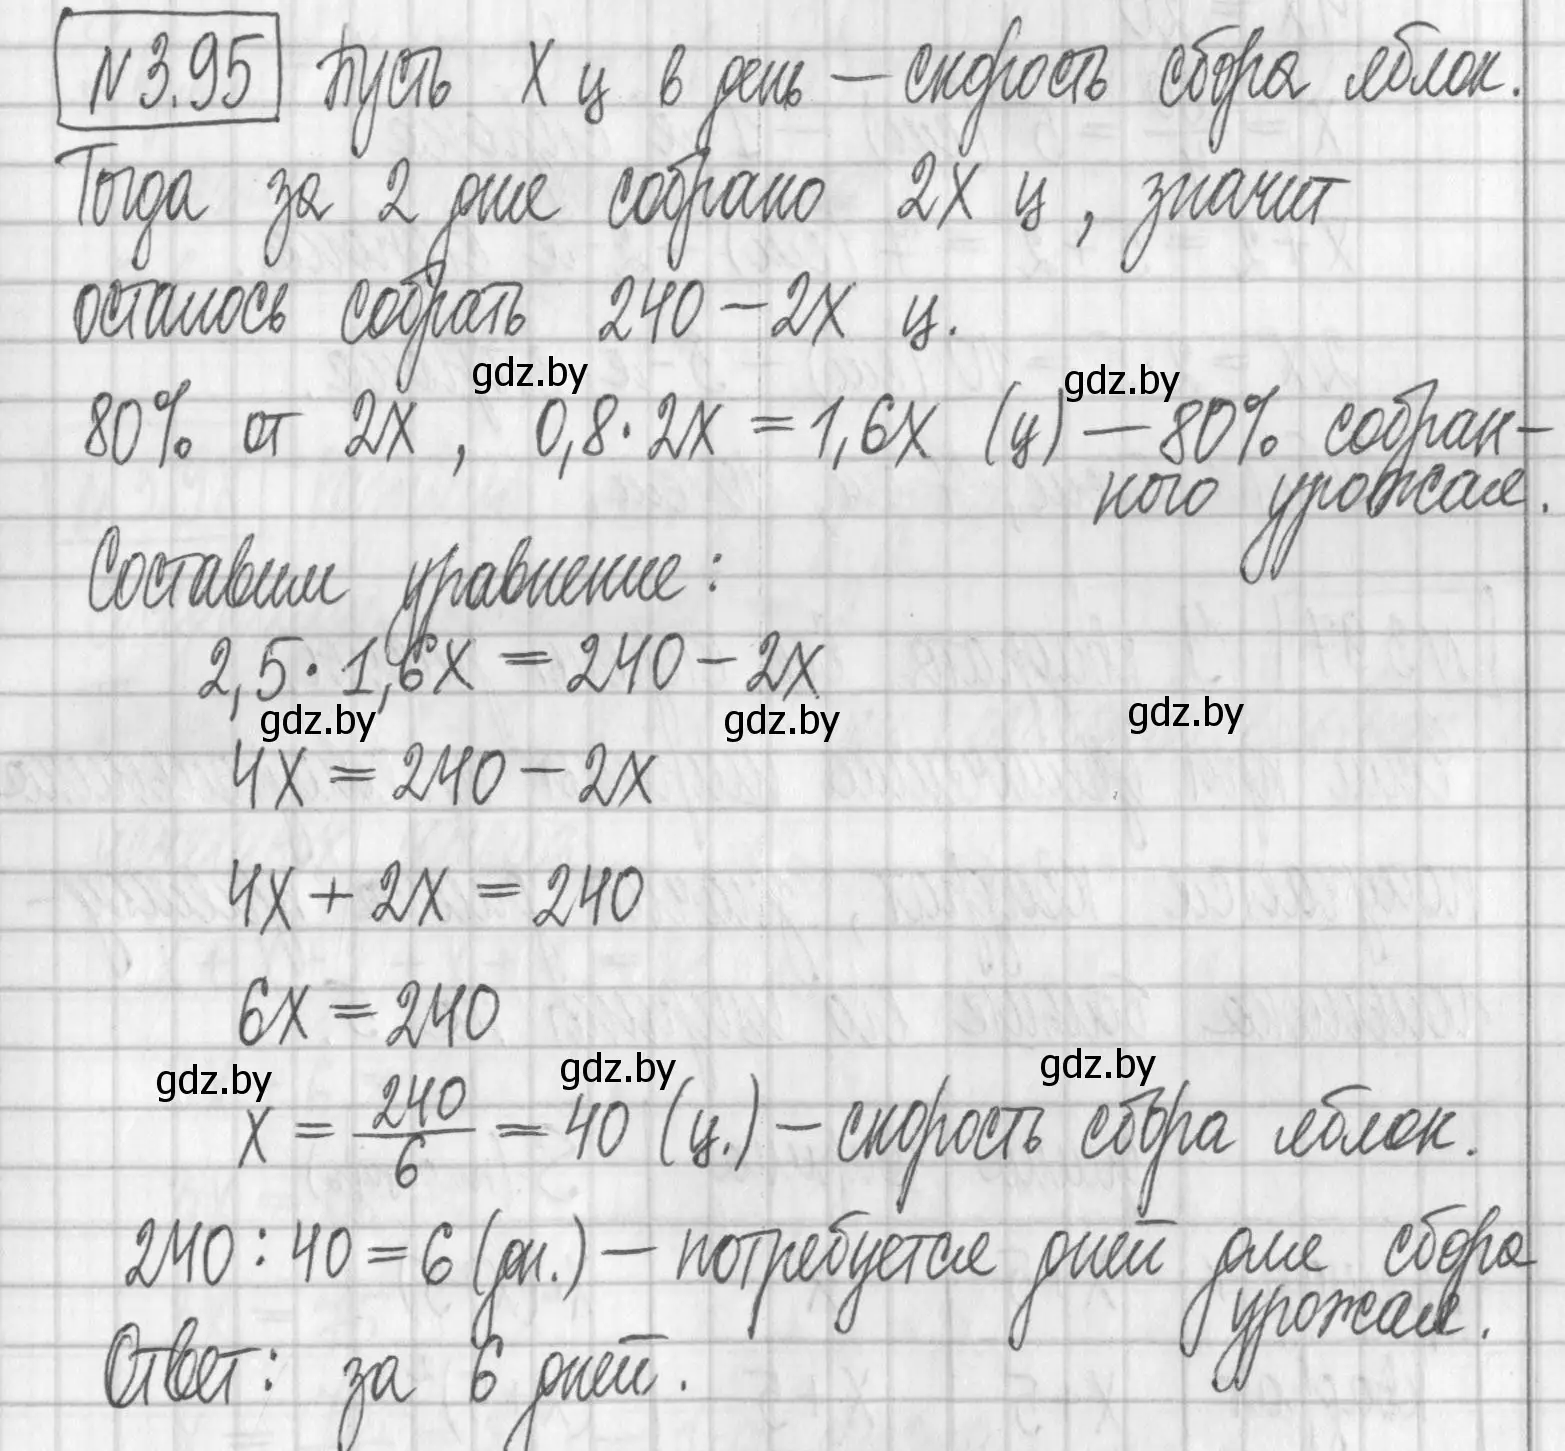 N 3.95 Пусть X ц в день — скорость сбора яблок.
Тогда за 2 дня собрано 2X ц, значит
осталось собрать 240 – 2X ц.
gdz.by gdz.by
80% от 2X, 0,8 · 2X = 1,6X (ц) — 80% собран–
ного урожая.
Составим уравнение:
2,5 · 1,6X = 240 – 2X
gdz.by gdz.by gdz.by
4X = 240 – 2X
4X + 2X = 240
6X = 240
gdz.by gdz.by gdz.by
X = 240/6 = 40 (ц.) – скорость сбора яблок.
240 : 40 = 6 (дн.) – потребуется дней для сбора
урожая.
Ответ: за 6 дней.